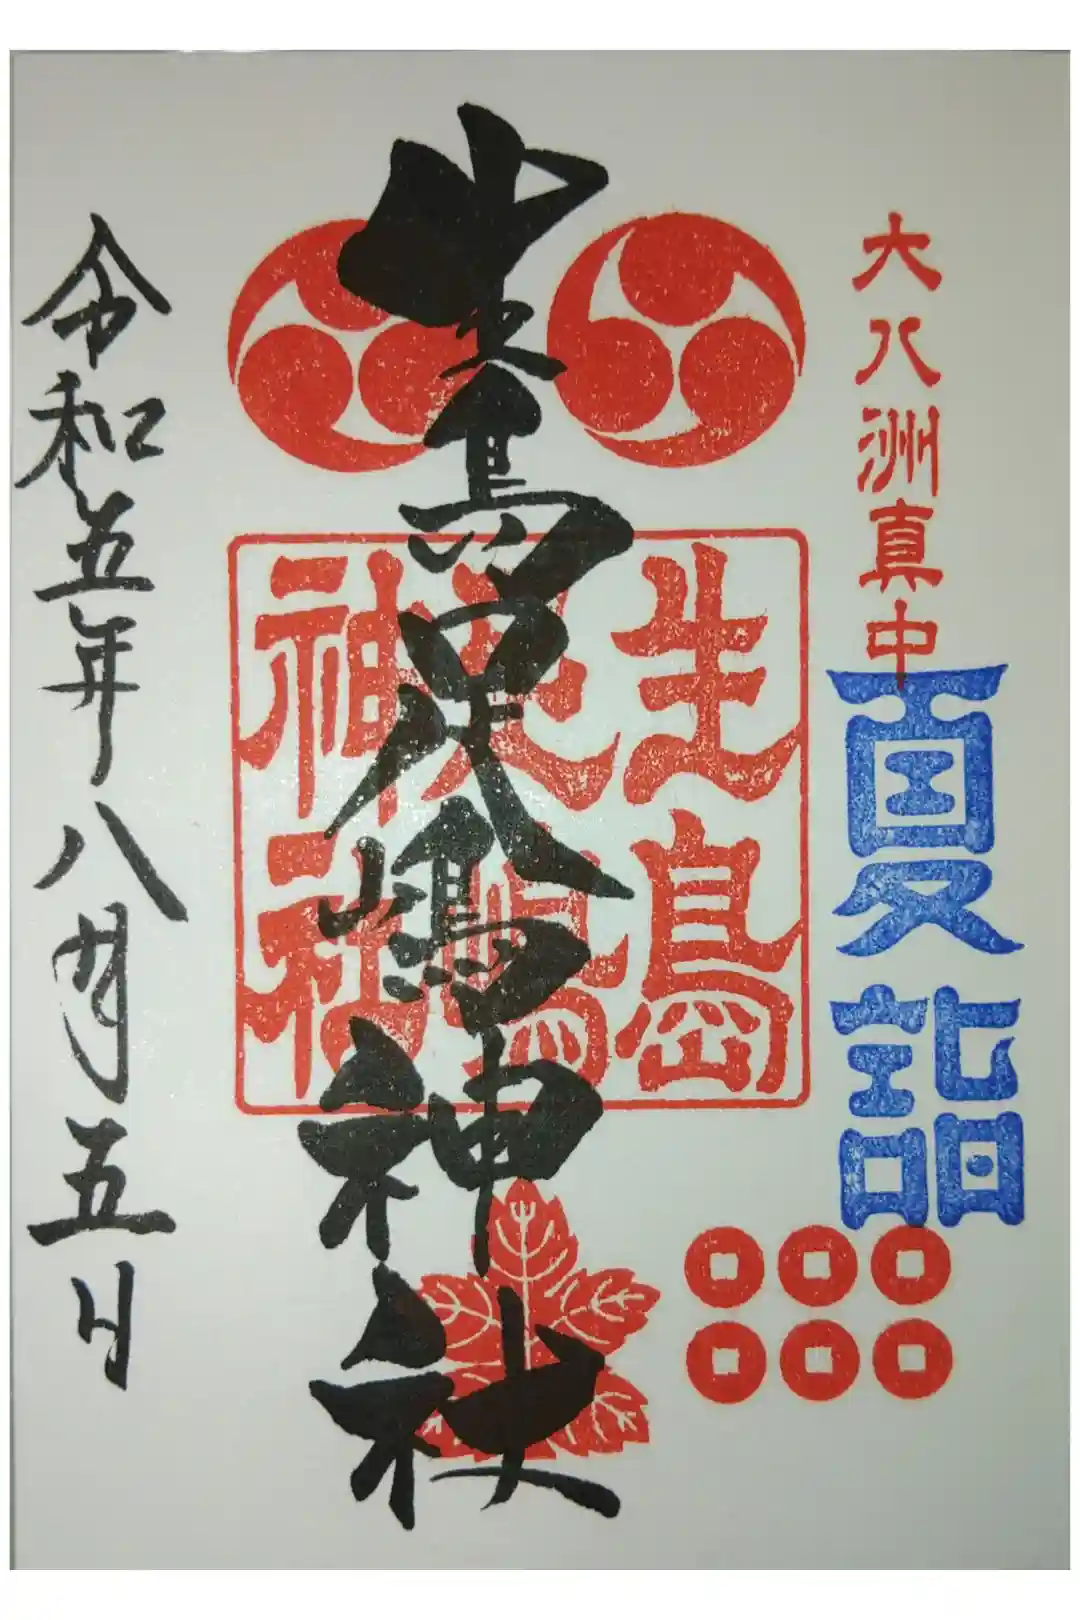 大八洲真中
夏詣
生島足嶋神社
生島
足嶋
神社
令和五年八月五日